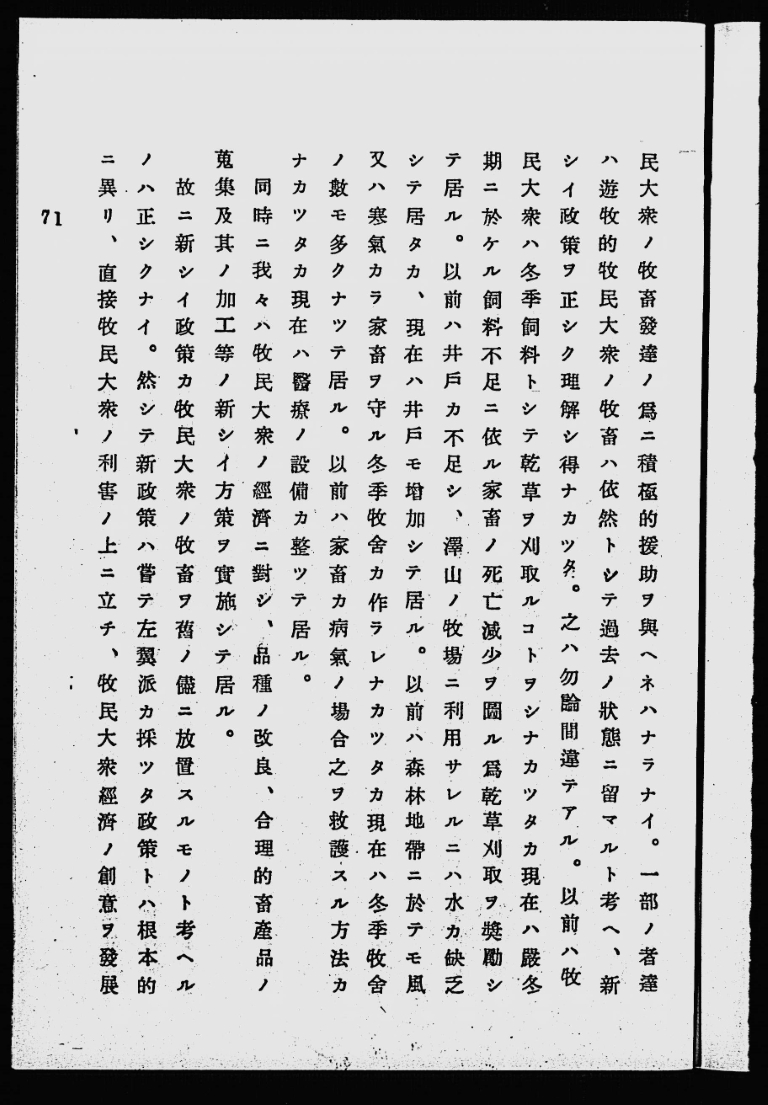 民大衆ノ牧畜發達ノ爲ニ積極的援助ヲ與ヘネハナラナイ。一部ノ者達
ハ遊牧的牧民大衆ノ牧畜ハ依然トシテ過去ノ狀態ニ留マルト考ヘ、新
シイ政策ヲ正シク理解シ得ナカツタ。之ハ勿論間違テアル。以前ハ牧
民大衆ハ冬季飼料トシテ乾草ヲ刈取ルコトヲシナカツタカ現在ハ嚴冬
期ニ於ケル飼料不足ニ依ル家畜ノ死亡減少ヲ圖ル爲乾草刈取ヲ奬勵シ
テ居ル。以前ハ井戶カ不足シ、澤山ノ牧場ニ利用サレルニハ水カ缺乏
シテ居タカ、現在ハ井戶モ增加シテ居ル。以前ハ森林地帶ニ於テモ風
又ハ寒氣カラ家畜ヲ守ル冬季牧舍カ作ラレナカツタカ現在ハ冬季牧舍
ノ數モ多クナツテ居ル。以前ハ家畜カ病氣ノ場合之ヲ救護スル方法カ
ナカツタカ現在ハ醫療ノ設備カ整ツテ居ル。
同時ニ我々ハ牧民大衆ノ經濟ニ對シ、品種ノ改良、合理的畜產品ノ
蒐集及其ノ加工等ノ新シイ方策ヲ實施シテ居ル。
故ニ新シイ政策カ牧民大衆ノ牧畜ヲ舊ノ儘ニ放置スルモノト考ヘル
ノハ正シクナイ。然シテ新政策ハ嘗テ左翼派カ採ツタ政策トハ根本的
ニ異リ、直接牧民大衆ノ利害ノ上ニ立チ、牧民大衆經濟ノ創意ヲ發展
71